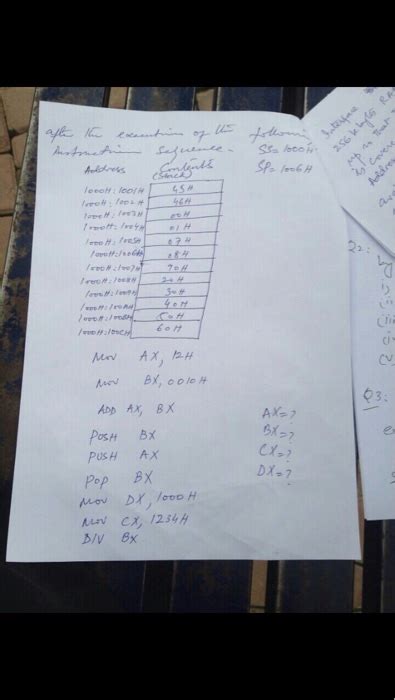 after the execution of the following
instruction sequence.
SS=1000H
SP=1006H
Address Contents
(stack)
1000H:1001H 45H
1000H:1002H 46H
1000H:1003H 00H
1000H:1004H 01H
1000H:1005H 07H
1000H:1006H 08H
1000H:1007H 90H
1000H:1008H 20H
1000H:1009H 30H
1000H:100AH 40H
1000H:100BH 50H
1000H:100CH 60H
Mov AX, 12H
Mov BX, 0010H
ADD AX, BX
PUSH BX
PUSH AX
POP BX
Mov DX, 1000H
Mov CX, 1234H
DIV BX
AX=?
BX=?
CX=?
DX=?
Interface
256 K byte RA
up as that
b) Conve
Address
Q2:
Q3: